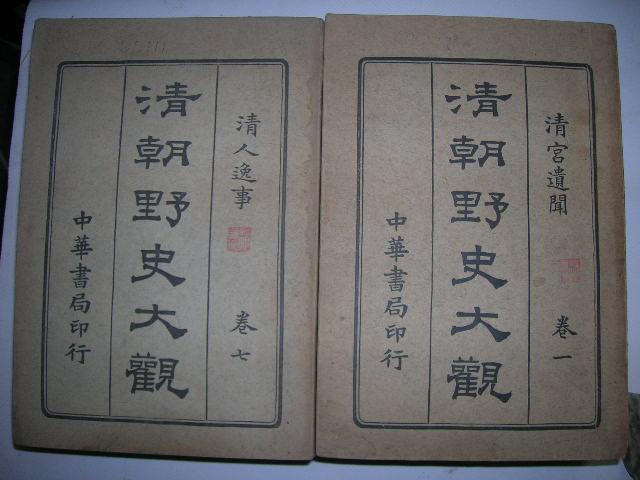 清人逸事 卷七
清朝野史大觀
中華書局印行
清宮遺聞 卷一
清朝野史大觀
中華書局印行